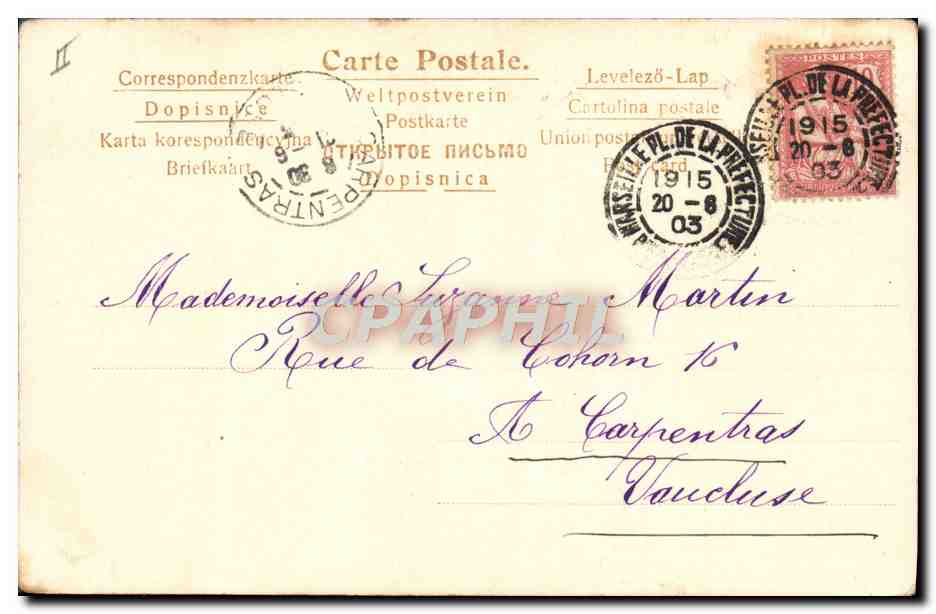 II
Carte Postale.
Correspondenzkarte
Dopisnice
Karta korespondencyjna
Briefkaart
Weltpostverein
Postkarte
ОТКРЫТОЕ ПИСЬМО
Dopisnica
Levelező-Lap
Cartolina postale
Union postale
card
CARPENTRAS
POSTES
MARSEILLE PL. DE LA PREFECTURE
1915
20-6
03
MARSEILLE PL. DE LA PREFECTURE
1915
20-6
03
Mademoiselle Suzanne Martin
Rue de Cohorn 16
A Carpentras
Vaucluse
CPAPHIL